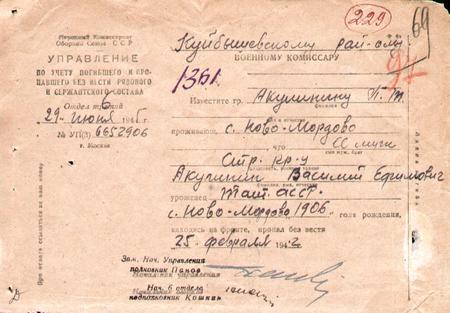 Народный Комиссариат
Обороны Союза ССР
УПРАВЛЕНИЕ
ПО УЧЕТУ ПОГИБШЕГО И ПРО-
ПАВШЕГО БЕЗ ВЕСТИ РЯДОВОГО
И СЕРЖАНТСКОГО СОСТАВА
Отдел 6
29 июня 1945 г.
№ УП(3) 6652906
г. Москва
229
69
Куйбышевскому рай-
ВОЕННОМУ КОМИССАРУ
1361
Известите гр. Акулинину П. М.
проживающ. с. Ново-Мордово
что ее муж
Стр. кр-ц
Акулинин Василий Ефимович
уроженец Тат. асср.
с. Ново-Мордово 1906 года рождения,
находясь на фронте, пропал без вести
25 февраля 1942
При ответе ссылаться на наш номер
Зам. Нач. Управления
полковник Панов
Начальник управления
Нач. 6 отдела
Начальник отдела
подполковник Кошкин